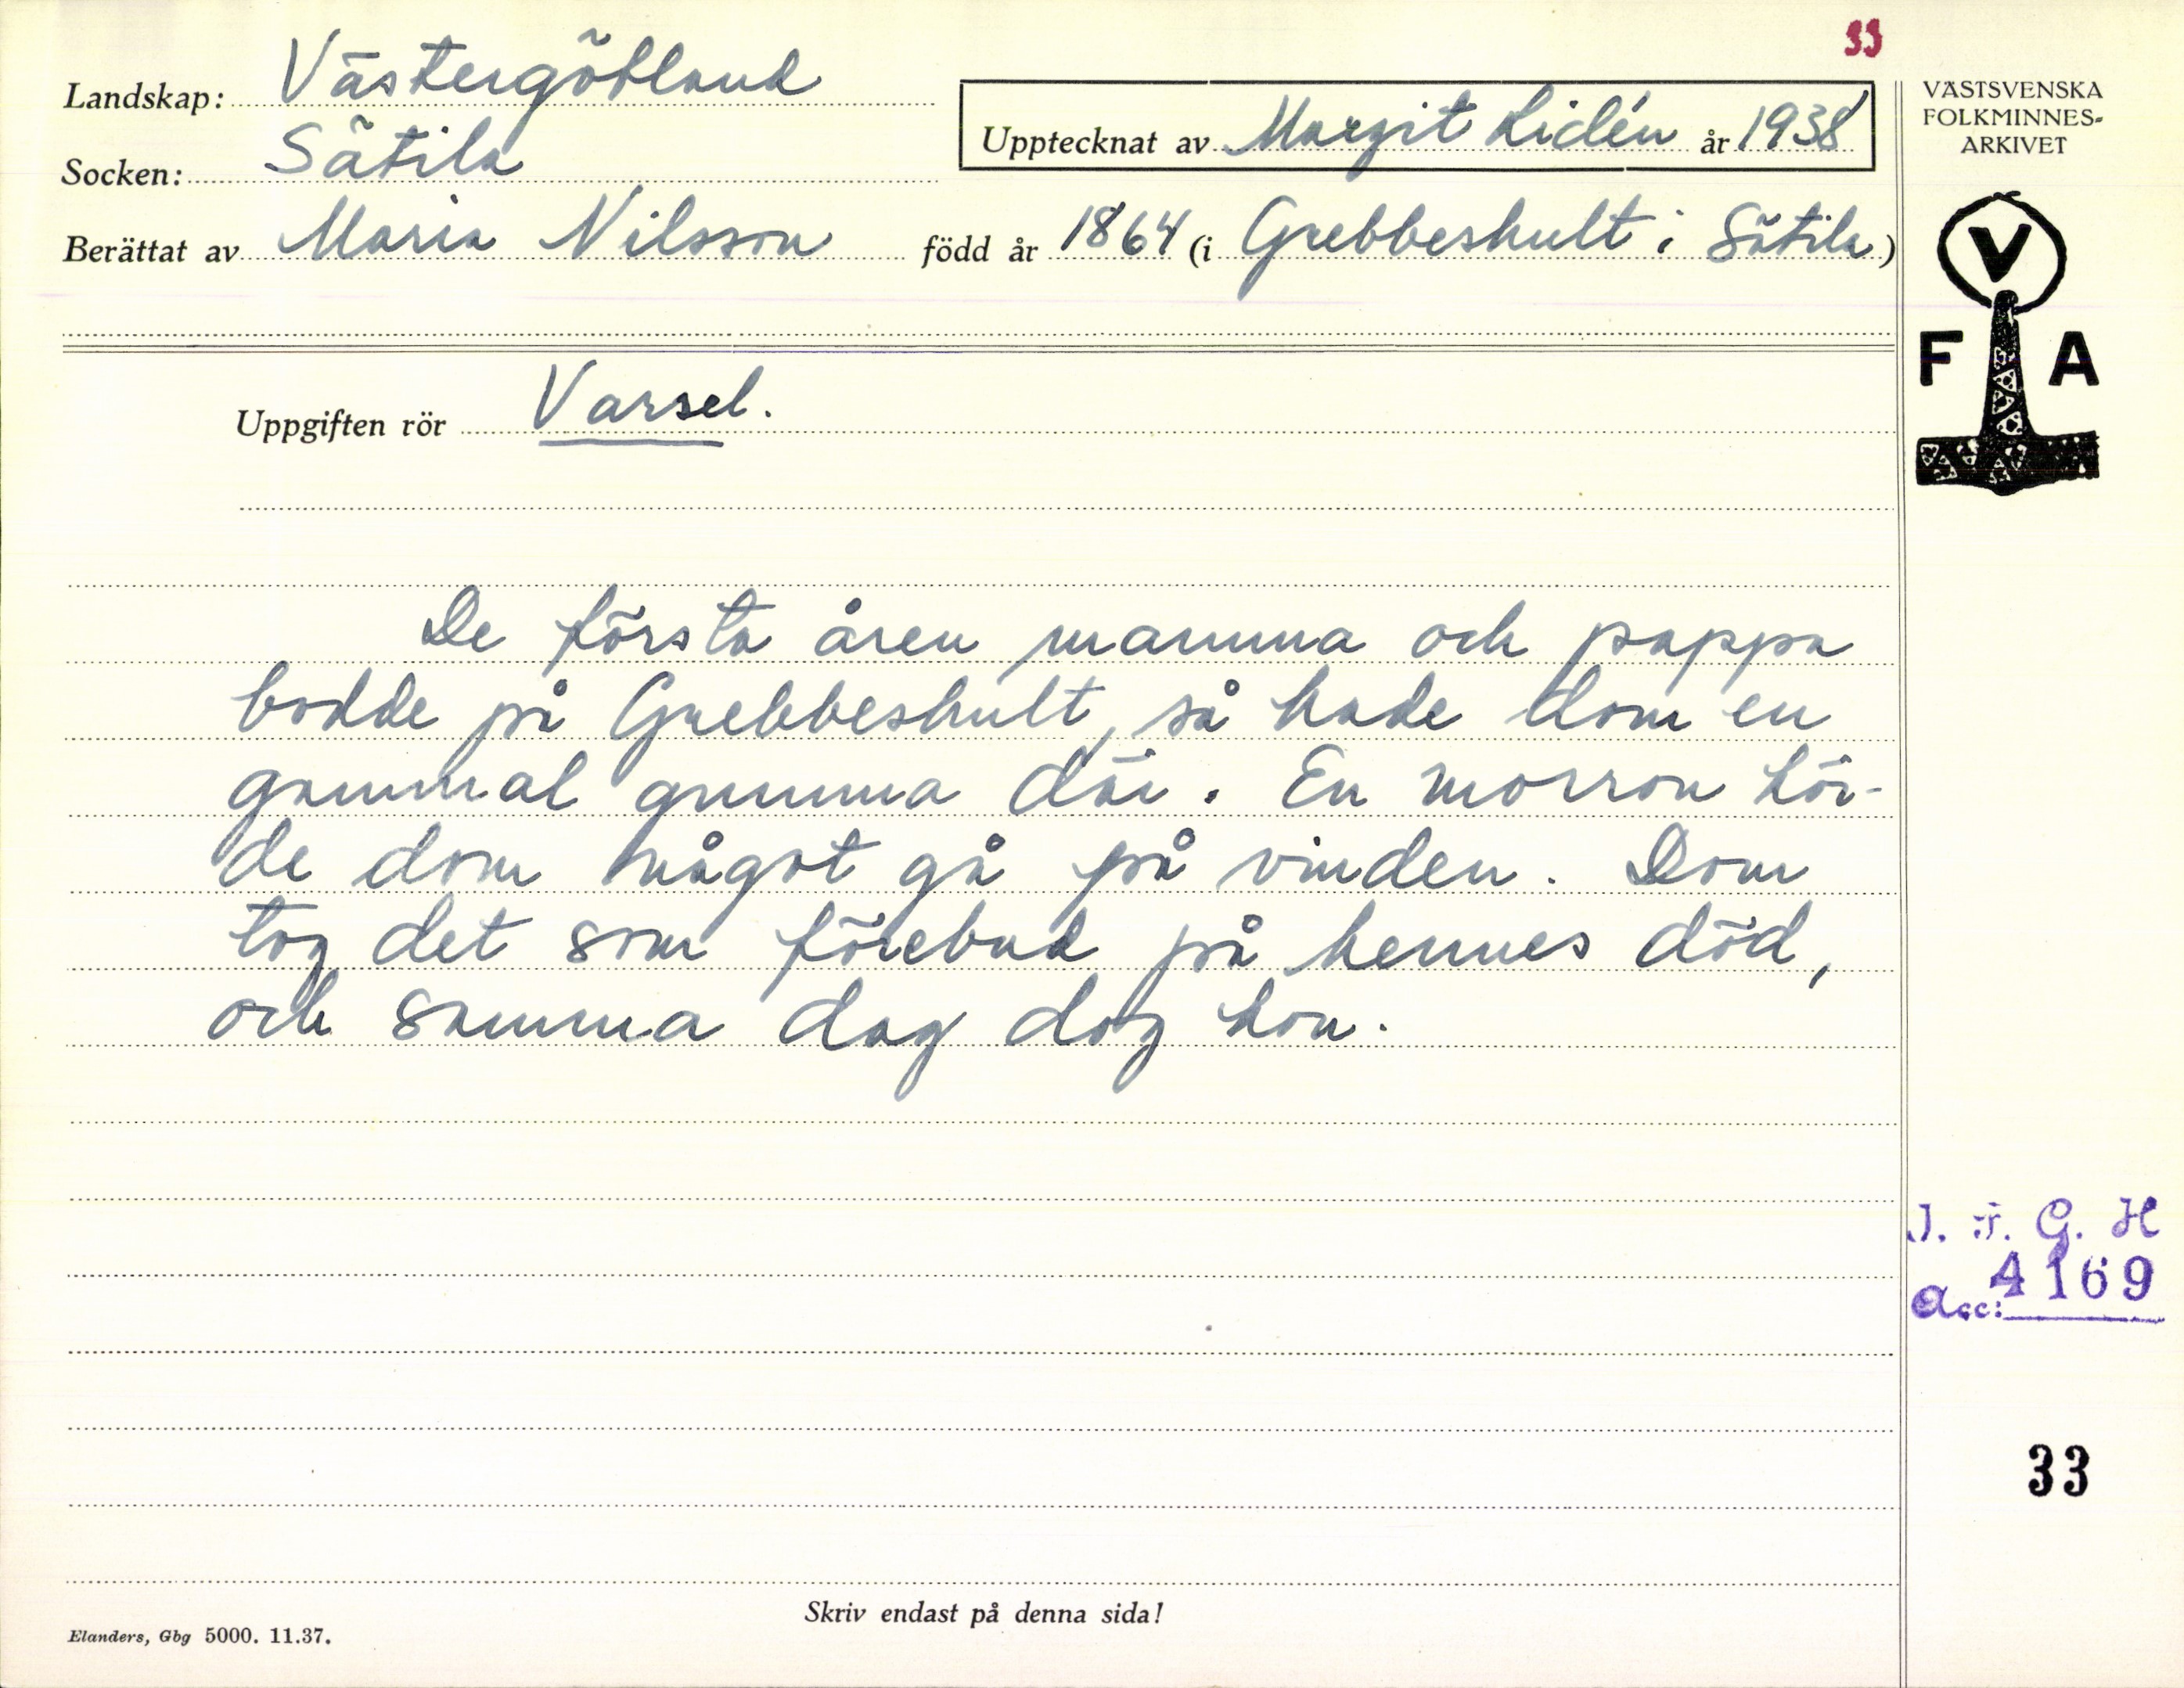 33
Landskap: Västergötland
Socken: Sätila
Upptecknat av Margit Lidén år 1938
Berättat av Maria Nilsson född år 1864 (i Grebbeshult i Sätila)
VÄSTSVENSKA
FOLKMINNES-
ARKIVET
V
F A
Uppgiften rör Varsel.
De första åren mamma och pappa
bodde på Grebbeshult, så hade dom en
gammal gumma där. En morron hör-
de dom något gå på vinden. Dom
tog det som förebud på hennes död,
och samma dag dog hon.
I. F. G. H
Acc: 4169
33
Skriv endast på denna sida!
Elanders, Gbg 5000. 11.37.